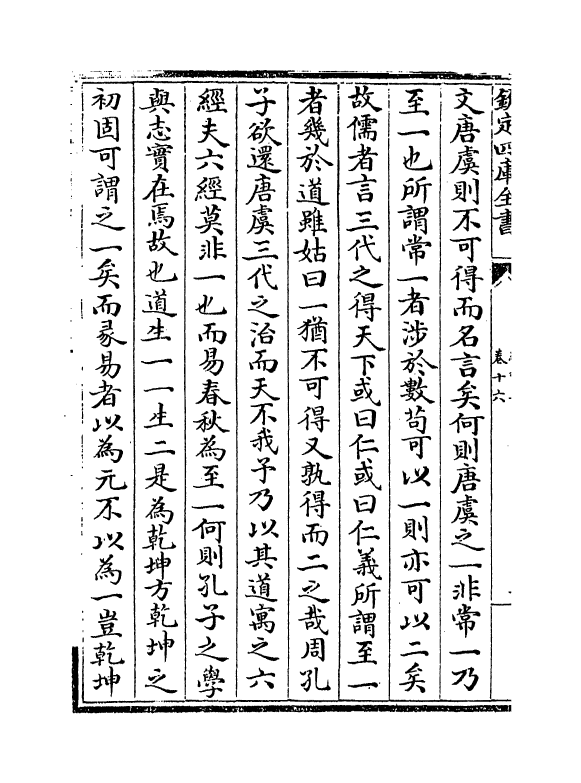 欽定四庫全書
卷十六
文唐虞則不可得而名言矣何則唐虞之一非常一乃
至一也所謂常一者涉於數苟可以一則亦可以二矣
故儒者言三代之得天下或曰仁或曰仁義所謂至一
者幾於道雖姑曰一猶不可得又孰得而二之哉周孔
子欲還唐虞三代之治而天不我予乃以其道寓之六
經夫六經莫非一也而易春秋為至一何則孔子之學
與志實在焉故也道生一一生二是為乾坤方乾坤之
初固可謂之一矣而彖易者以為元不以為一豈乾坤